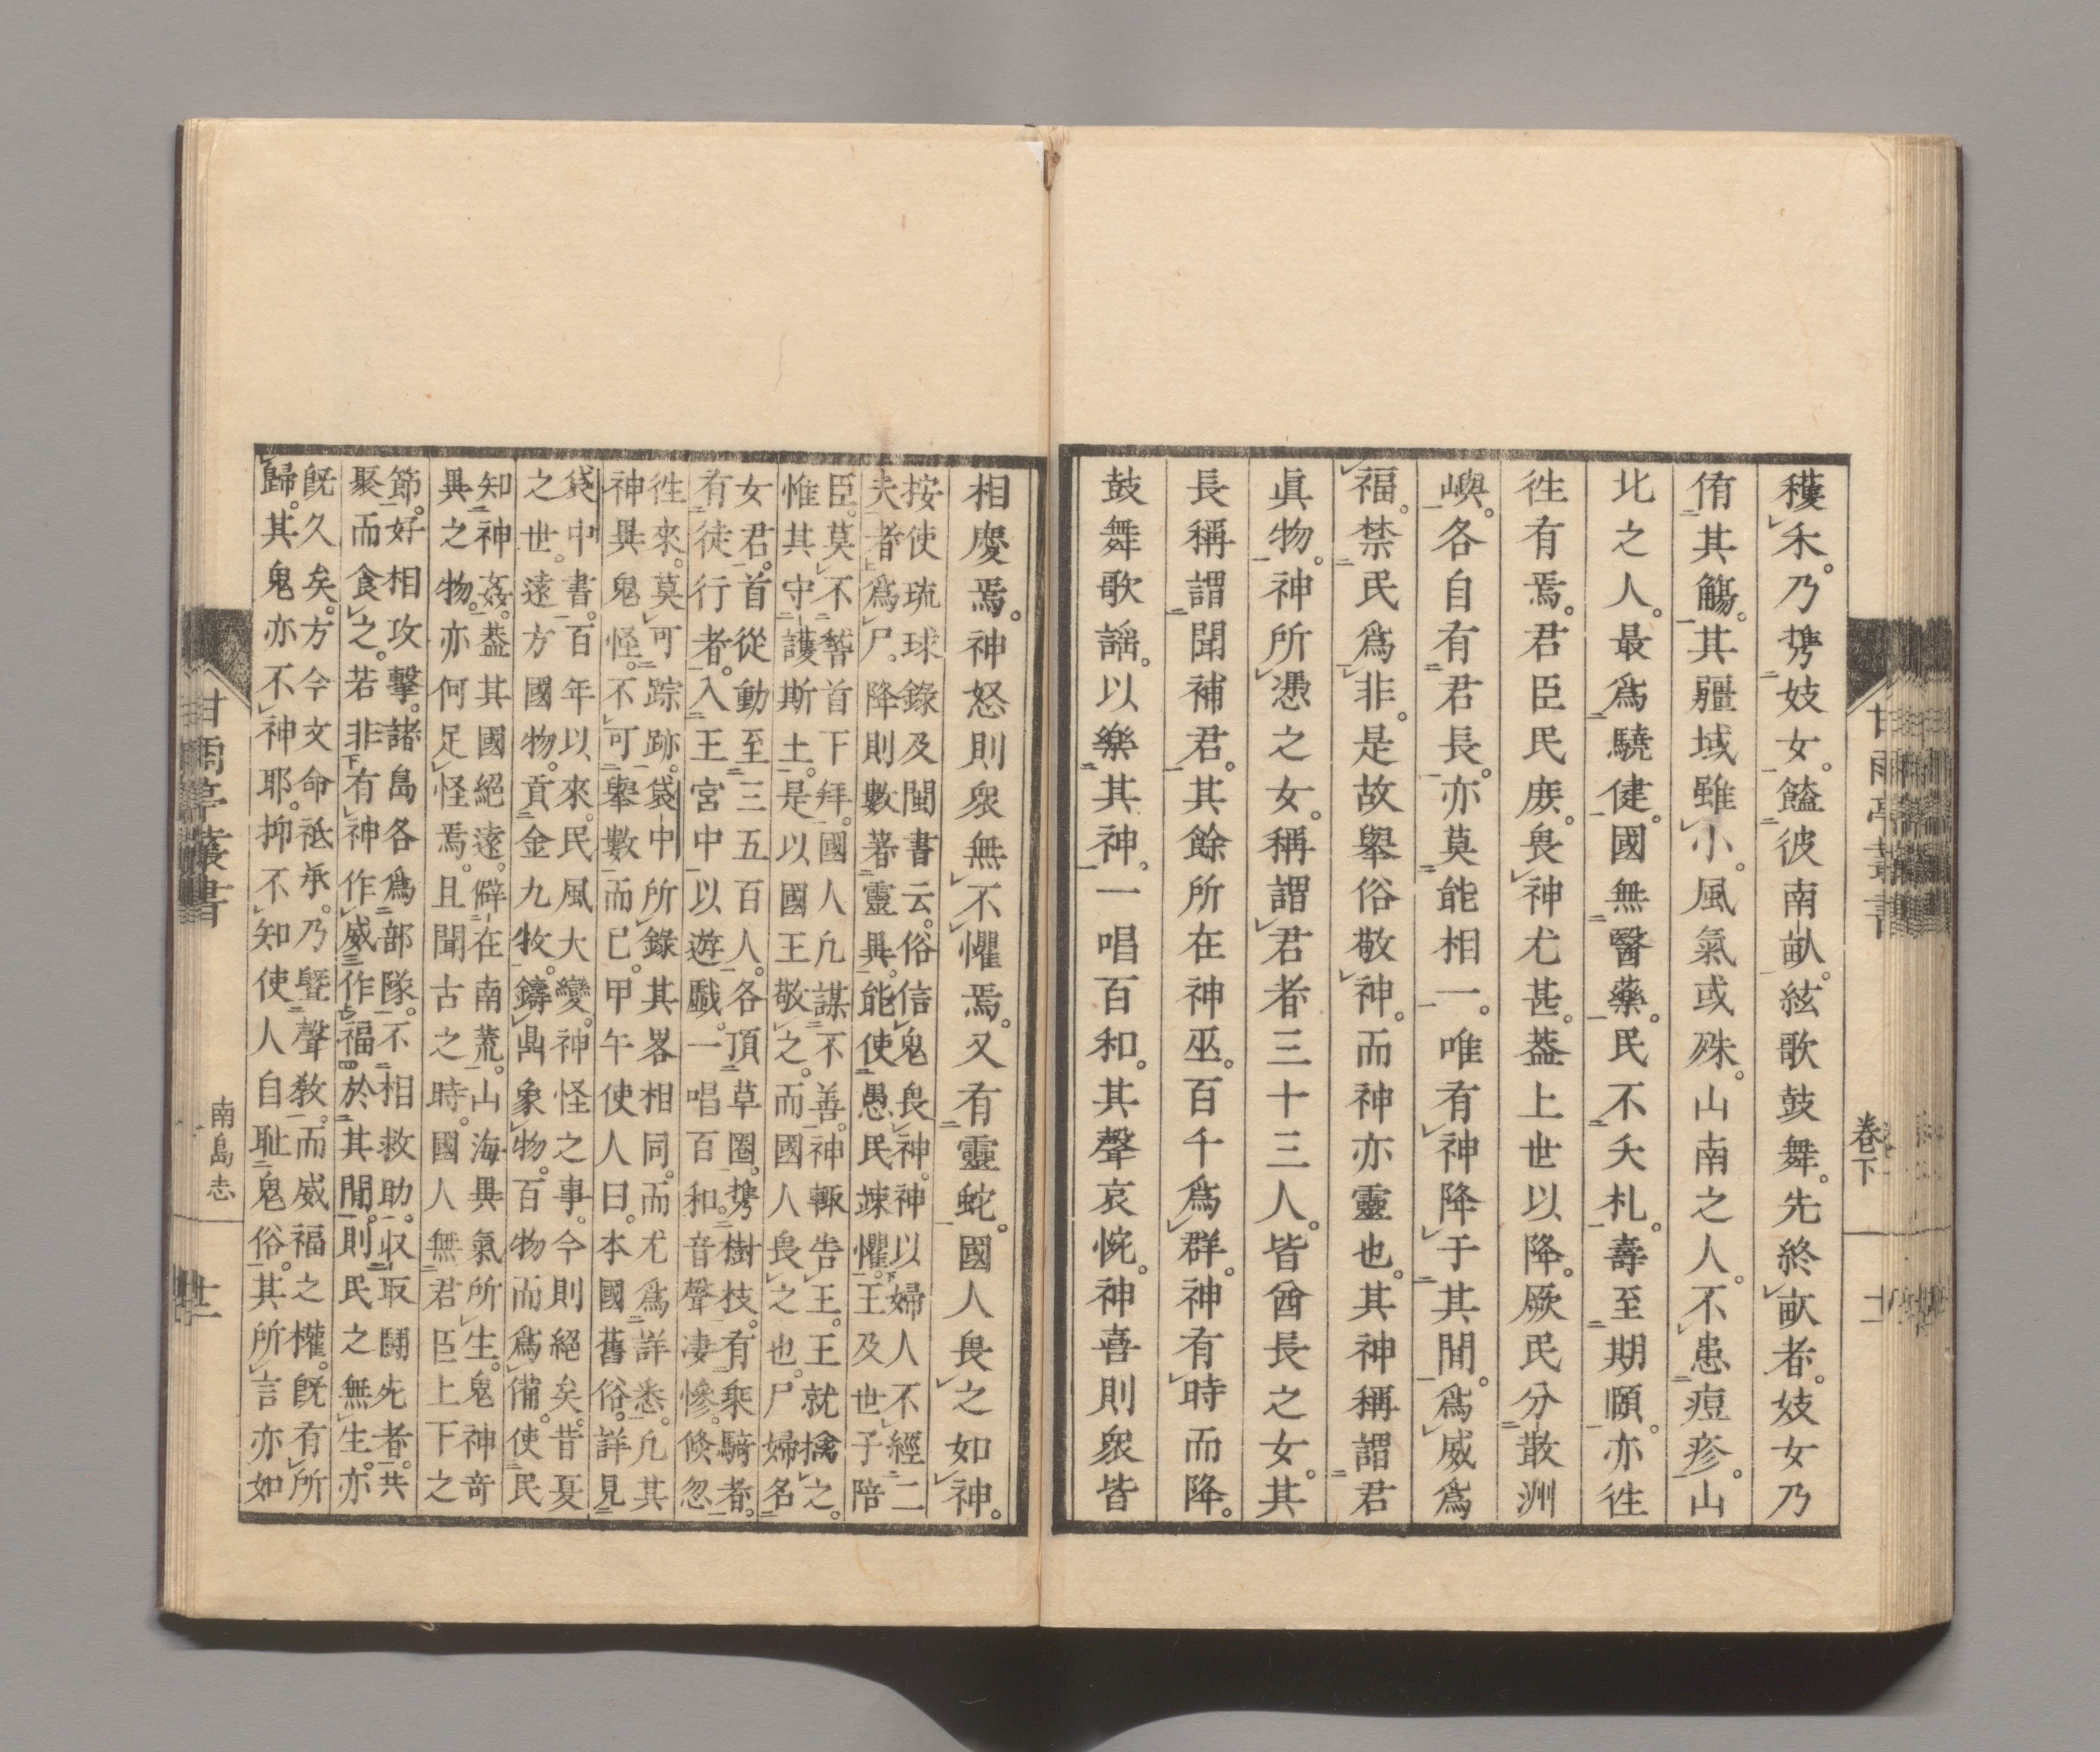 穫禾。乃携妓女。饁彼南畝。絃歌鼓舞。先終畝者。妓女乃
侑其觴。其疆域雖小。風氣或殊。山南之人。不患痘疹。山
北之人。最爲驍健。國無醫藥。民不夭札。壽至期頤。亦徃
徃有焉。君臣民庻。畏神尤甚。葢上世以降。厥民分散洲
嶼。各自有君長。亦莫能相一。唯有神降于其間。爲威爲
福。禁民爲非。是故擧俗敬神。而神亦靈也。其神稱謂君
眞物。神所憑之女。稱謂君者三十三人。皆酋長之女。其
長稱謂聞補君。其餘所在神巫。百千爲群。神有時而降。
鼓舞歌謡。以樂其神。一唱百和。其聲哀惋。神喜則衆皆
相慶焉。神怒則衆無不懼焉。又有靈蛇。國人畏之如神。
按使琉球錄及閩書云。俗信鬼畏神。神以婦人不經二
夫者爲尸。降則數著靈異。能使愚民竦懼。王及世子陪
臣。莫不䭫首下拜。國人凢謀不善。神輙告王。王就擒之。
惟其守護斯土。是以國王敬之。而國人畏之也。尸婦名
女君。首從動至三五百人。各頂草圈。携樹枝。有乗騎者。
有徒行者。入王宮中以遊戯。一唱百和。音聲凄慘。倐忽
徃來。莫可踪跡。袋中所錄其畧相同。而尤爲詳悉。凢其
神異鬼怪。不可擧數而已。甲午使人曰。本國舊俗。詳見
袋中書。百年以來。民風大變。神怪之事。今則絕矣。昔夏
之世。遠方國物。貢金九牧。鑄鼎象物。百物而爲備。使民
知神姦。葢其國絕遠。僻在南荒。山海異氣所生。鬼神奇
異之物。亦何足怪焉。且聞古之時。國人無君臣上下之
節。好相攻擊。諸島各爲部隊。不相救助。収取鬪死者。共
聚而食之。若非有神作威作福於其間。則民之無生。亦
旣久矣。方今文命祗承。乃曁聲教。而威福之權。旣有所
歸。其鬼亦不神耶。抑不知使人自耻鬼俗。其所言亦如
甘雨亭叢書
卷下
甘雨亭叢書
南島志